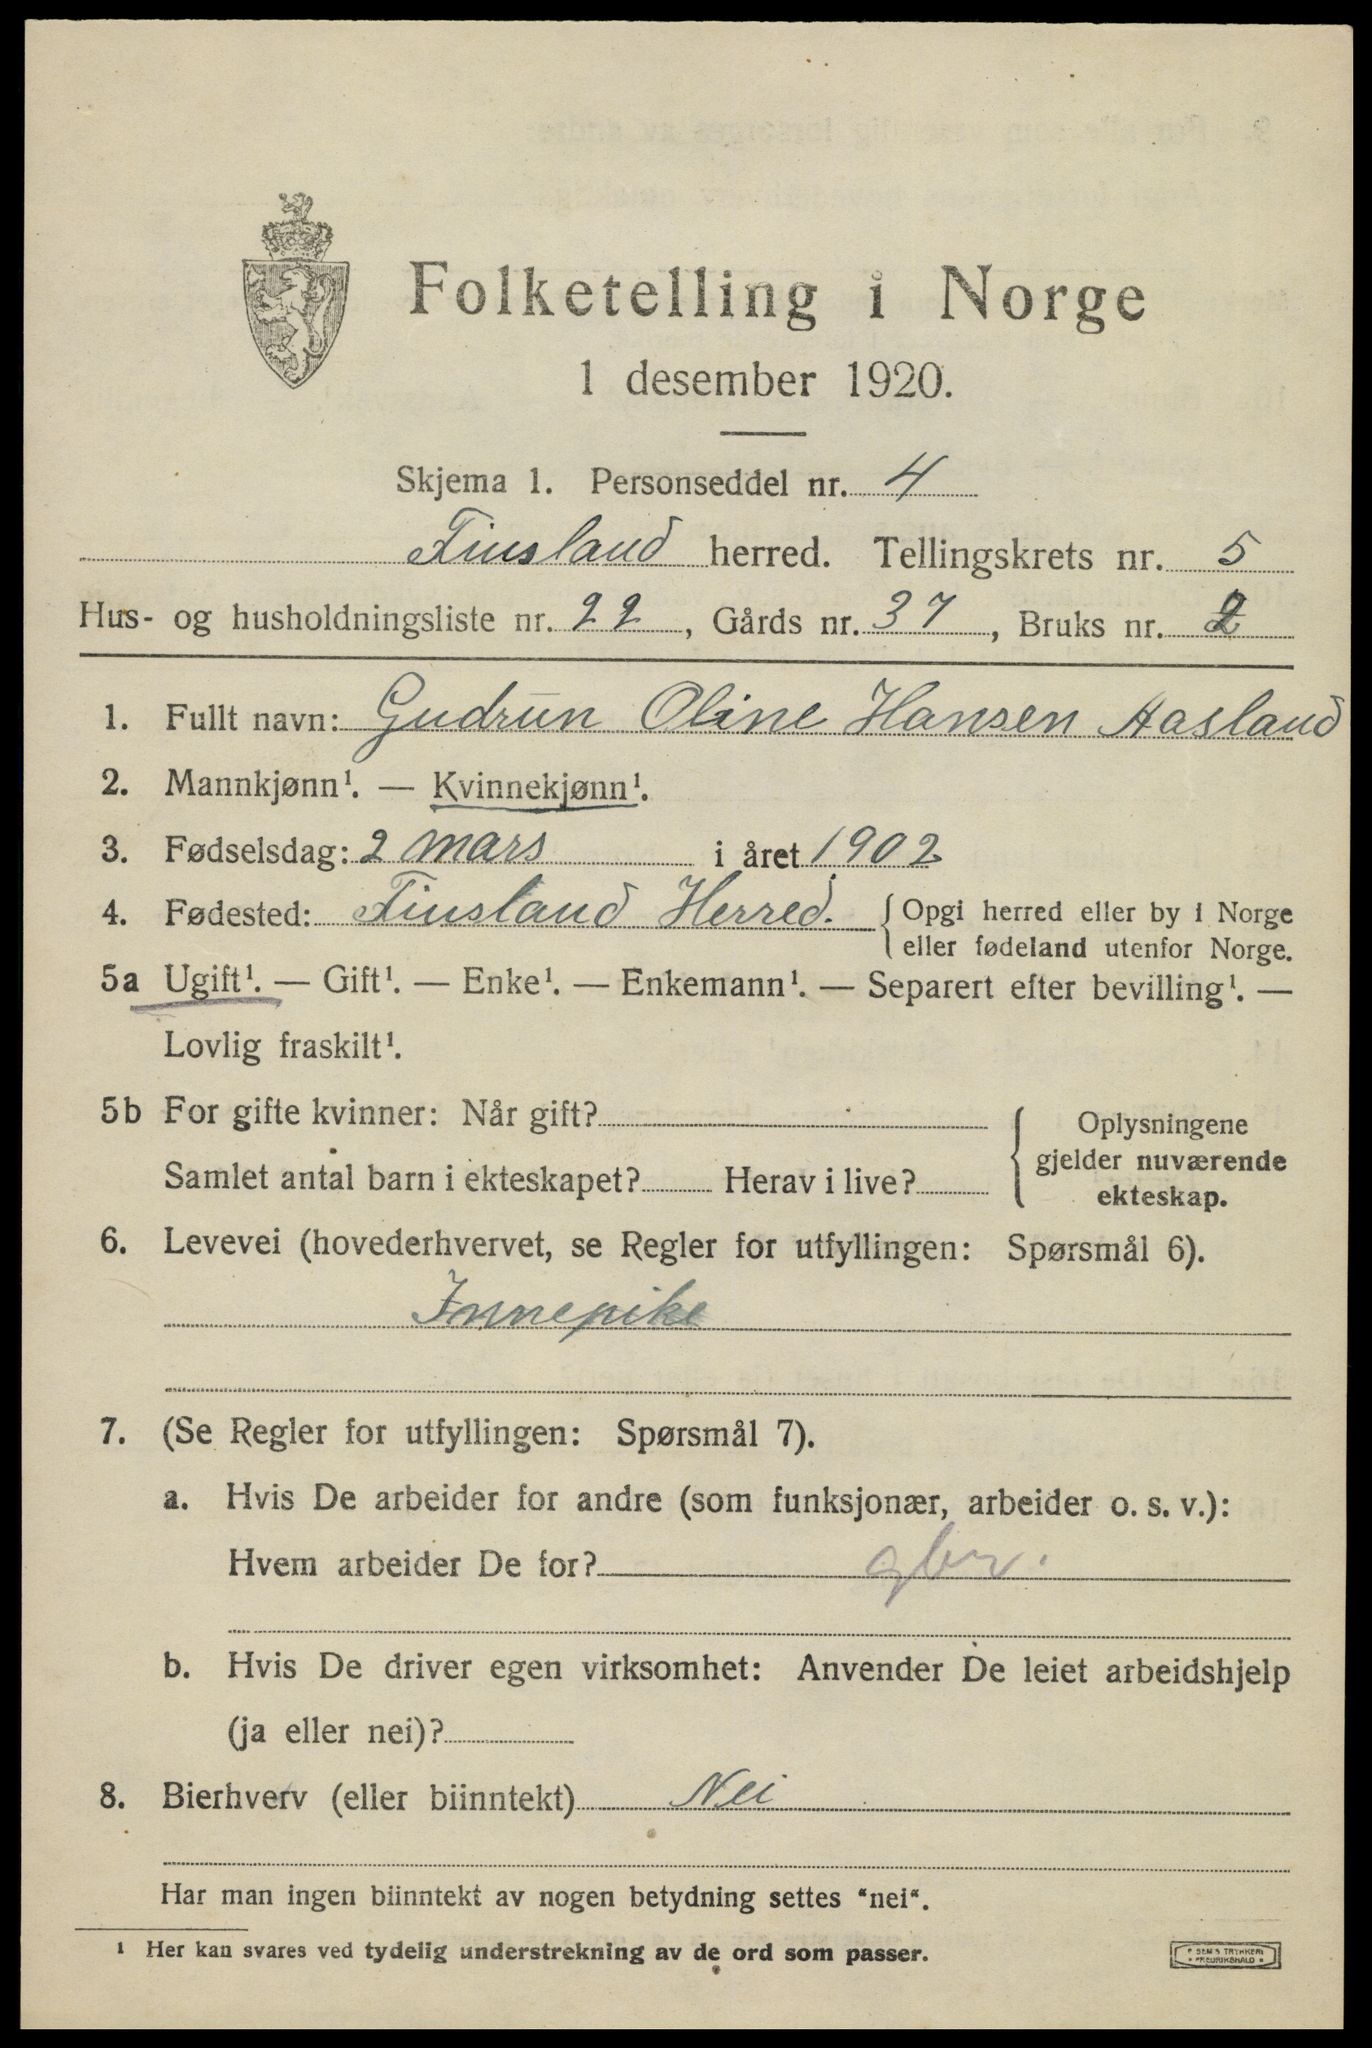 Folketelling i Norge
1 desember 1920.
Skjema 1. Personseddel nr. 4
Finsland herred. Tellingskrets nr. 5
Hus- og husholdningsliste nr. 22, Gårds nr. 37, Bruks nr. 2
1. Fullt navn: Gudrun Oline Hansen Aasland
2. Mannkjønn¹. — Kvinnekjønn¹.
3. Fødselsdag: 2 mars i året 1902
4. Fødested: Finsland Herred. { Opgi herred eller by i Norge
eller fødeland utenfor Norge.
5a Ugift¹. — Gift¹. — Enke¹. — Enkemann¹. — Separert efter bevilling¹. —
Lovlig fraskilt¹.
5b For gifte kvinner: Når gift?
Samlet antal barn i ekteskapet? Herav i live?
{ Oplysningene
gjelder nuværende
ekteskap.
6. Levevei (hovederhvervet, se Regler for utfyllingen: Spørsmål 6).
Innepike
7. (Se Regler for utfyllingen: Spørsmål 7).
a. Hvis De arbeider for andre (som funksjonær, arbeider o. s. v.):
Hvem arbeider De for? gbr.
b. Hvis De driver egen virksomhet: Anvender De leiet arbeidshjelp
(ja eller nei)?
8. Bierhverv (eller biinntekt) Nei
Har man ingen biinntekt av nogen betydning settes "nei".
¹ Her kan svares ved tydelig understrekning av de ord som passer.
SEM'S TRYKKERI
FREDRIKSHALD